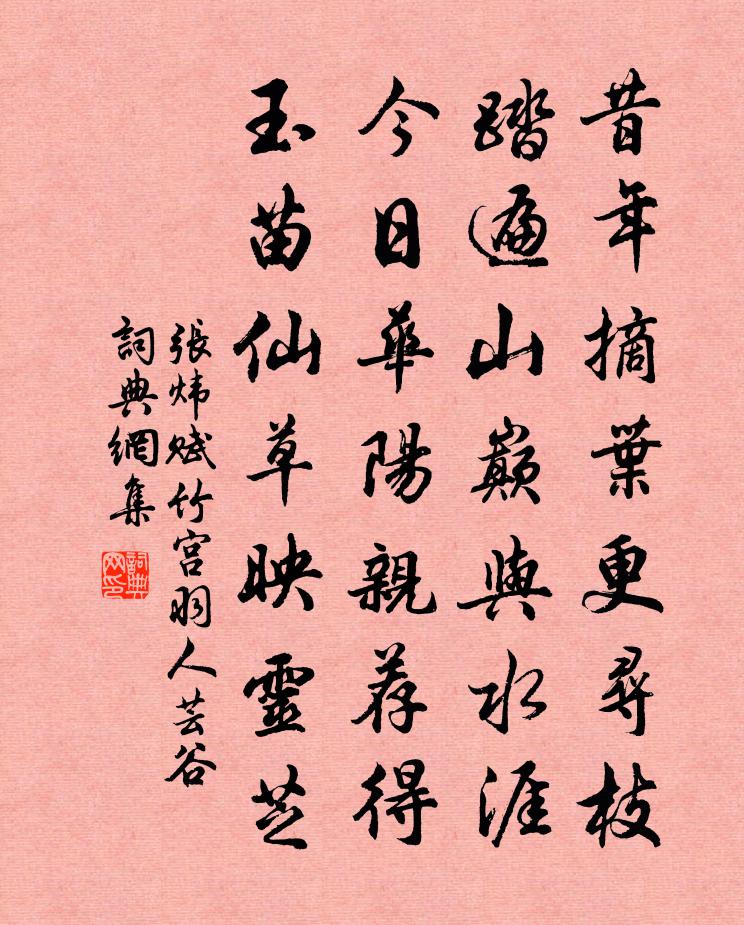 昔年摘葉更尋枝
踏遍山巔與水涯
今日華陽親荐得
玉苗仙草映靈芝
張炜赋竹宫羽人芸谷
詞典網集
詞典网印